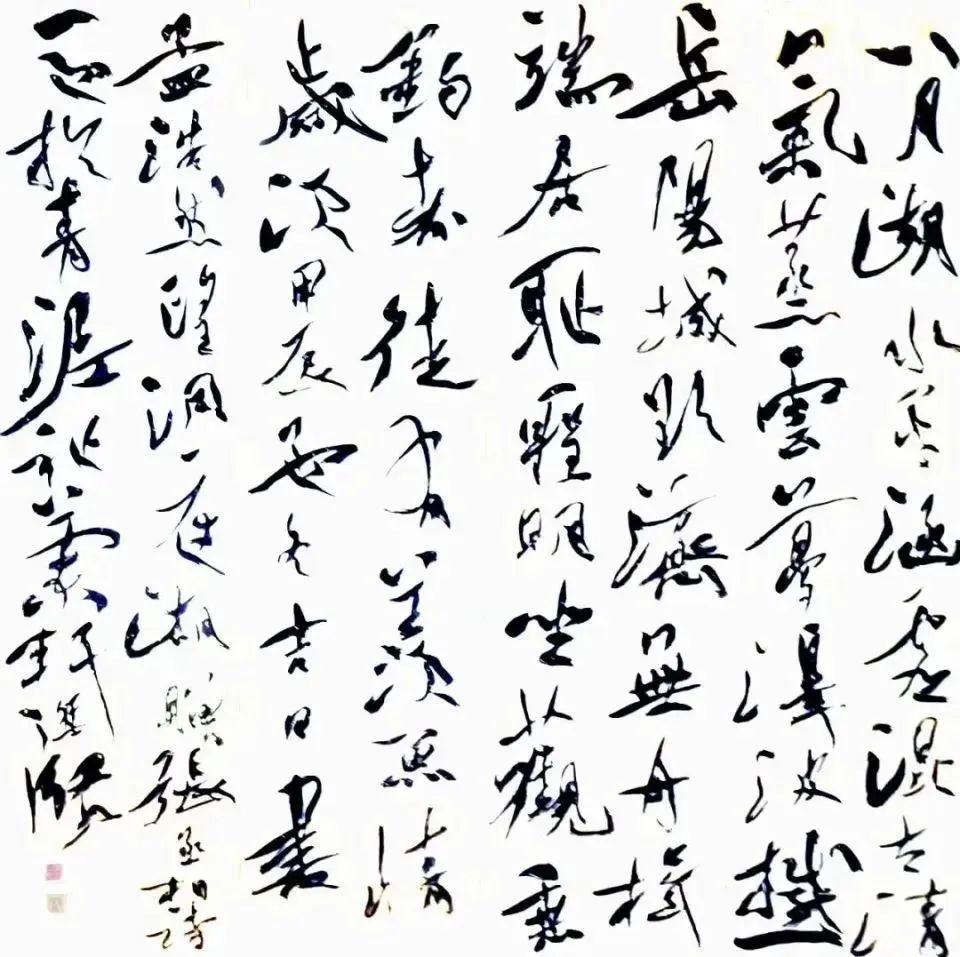 八月湖水平涵虛混太清
氣蒸雲夢澤波撼
岳陽城欲濟無舟楫
端居耻聖明坐觀垂
釣者徒有羡魚情
歲次甲辰孟冬吉日書
孟浩然望洞庭湖贈張丞相詩
於青軒